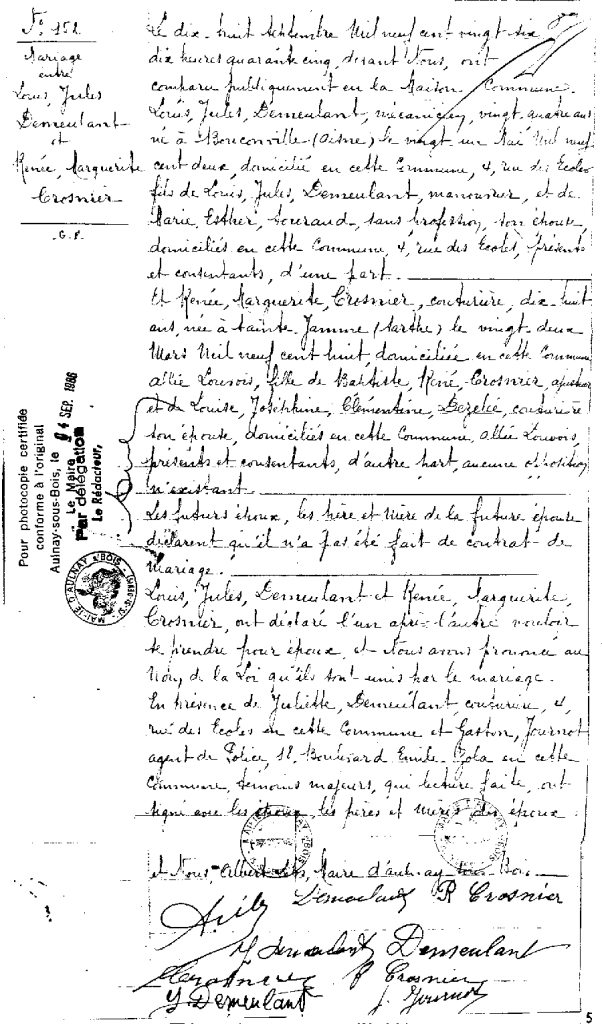 N° 152
Mariage
entre
Louis, Jules
Demeulant
et
Renée, Marguerite
Crosnier
G. P.
Le dix-huit Septembre Mil neuf cent vingt six
dix heures quarante cinq, devant Nous, ont
comparu publiquement en la Maison Commune.
Louis, Jules, Demeulant, mécanicien, vingt quatre ans
né à Bouconville (Aisne) le vingt un Mai Mil neuf
cent deux, domicilié en cette Commune, 4, rue des Ecoles
fils de Louis, Jules, Demeulant, manouvrier, et de
Marie, Esther, sans profession, son épouse,
domiciliés en cette Commune, 4, rue des Ecoles, présents
et consentants, d'une part.
Et Renée, Marguerite, Crosnier, couturière, dix-huit
ans, née à Sainte-Jamme (Sarthe) le vingt-deux
Mars Mil neuf cent huit, domiciliée en cette Commune
allée Louvois, fille de Baptiste, René, Crosnier, ajusteur
et de Louise, Joséphine, Clémentine, couturière
son épouse, domiciliés en cette Commune, allée Louvois,
présents et consentants, d'autre part, aucune opposition
n'existant.
Les futurs époux, les père et mère de la future épouse
déclarent qu'il n'a pas été fait de contrat de
mariage.
Louis, Jules, Demeulant et Renée, Marguerite,
Crosnier, ont déclaré l'un après l'autre vouloir
se prendre pour époux, et Nous avons prononcé au
Nom de la Loi qu'ils sont unis par le mariage.
En présence de Juliette, Demeulant, couturière, 4,
rue des Ecoles en cette Commune et Gaston, Journot
agent de Police, 18, Boulevard Emile-Zola en cette
Commune, témoins majeurs, qui lecture faite, ont
signé avec les époux, les pères et mères des époux
et Nous Albert Maire d'Aulnay-sous-Bois
Demeulant R Crosnier
Demeulant Demeulant
Crosnier
Demeulant J. Journot
Pour photocopie certifiée
conforme à l'original
Aulnay-sous-Bois, le 24 SEP. 1986
Le Maire
Par délégation
Le Rédacteur,
MAIRIE D'AULNAY S/BOIS
5